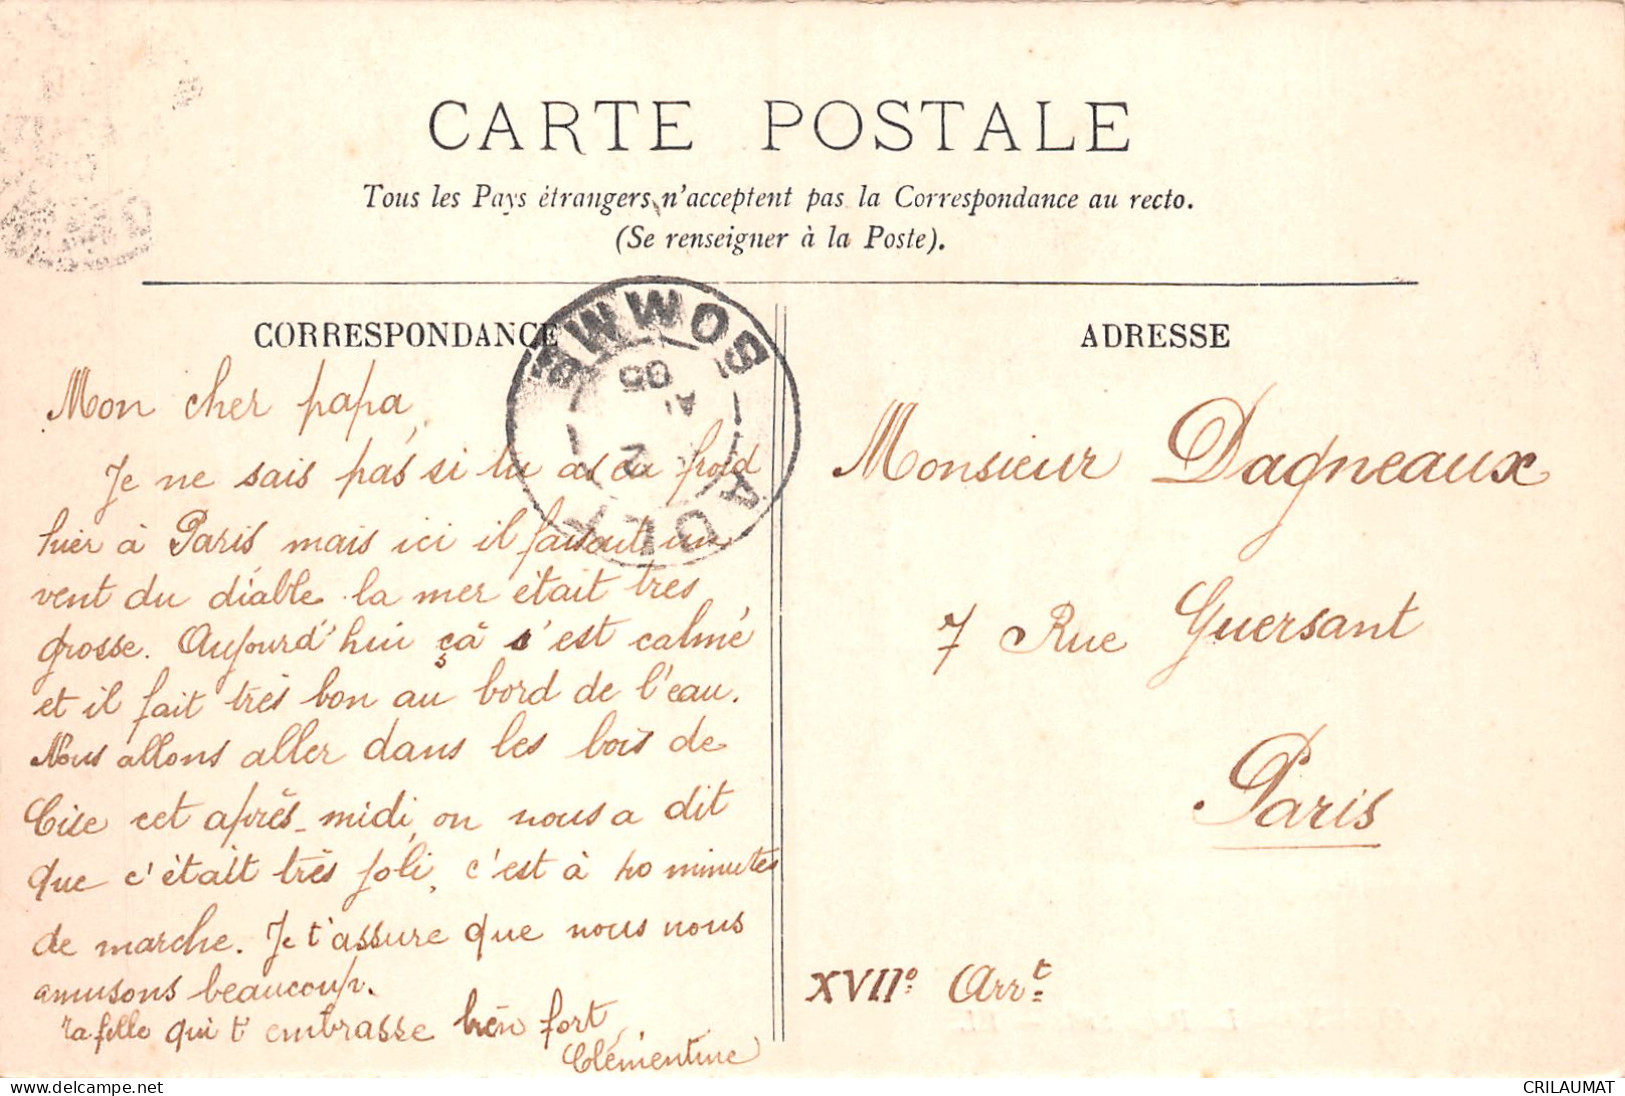 CARTE POSTALE
Tous les Pays étrangers n'acceptent pas la Correspondance au recto.
(Se renseigner à la Poste).
CORRESPONDANCE
ADRESSE
SOMME
05
2
AULT
Mon cher papa,
Je ne sais pas si tu as eu froid
hier à Paris mais ici il faisait un
vent du diable la mer était très
grosse. Aujourd'hui çà s'est calmé
et il fait très bon au bord de l'eau.
Nous allons aller dans les bois de
Cise cet après-midi, on nous a dit
que c'était très joli, c'est à 40 minutes
de marche. Je t'assure que nous nous
amusons beaucoup.
Ta fille qui t'embrasse bien fort,
Clémentine
Monsieur Dagneaux
7 Rue Guersant
Paris
XVIIº Arrt
CRILAUMAT